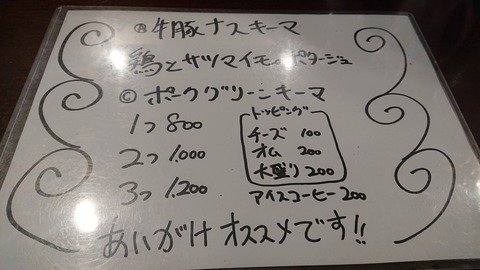 Ⓐ牛豚ナスキーマ
鶏とサツマイモのポタージュ
Ⓒポークグリーンキーマ
1つ 800
2つ 1,000
3つ 1,200
トッピング
チーズ 100
オム 200
大盛り 200
アイスコーヒー 200
あいがけオススメです!!